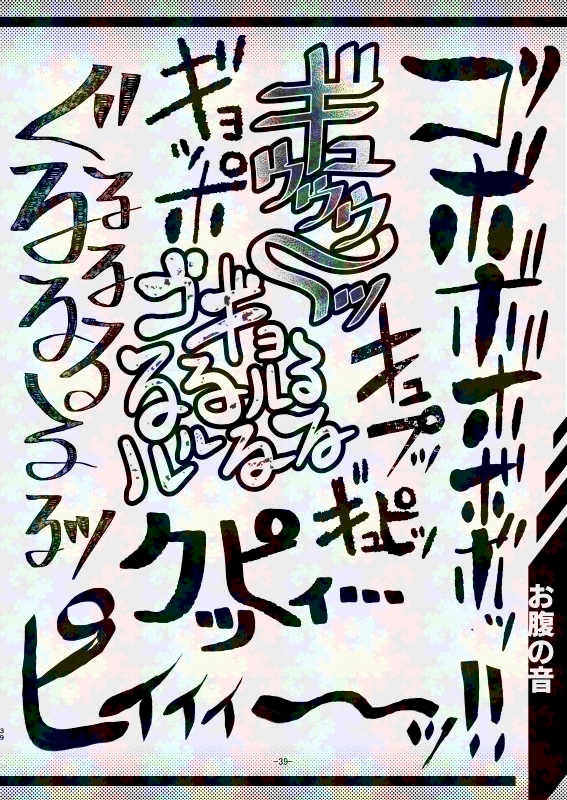 ゴッボボボボボボッ
ギュウウウウ〜ッ
ギョッポ
ぐるるるるるるるるッ
ゴギョるるルるルルるるる
キュプッ
ギュピッ
クッピィ…
ピィィィィ〜〜ッ!!
お腹の音
-39-
39